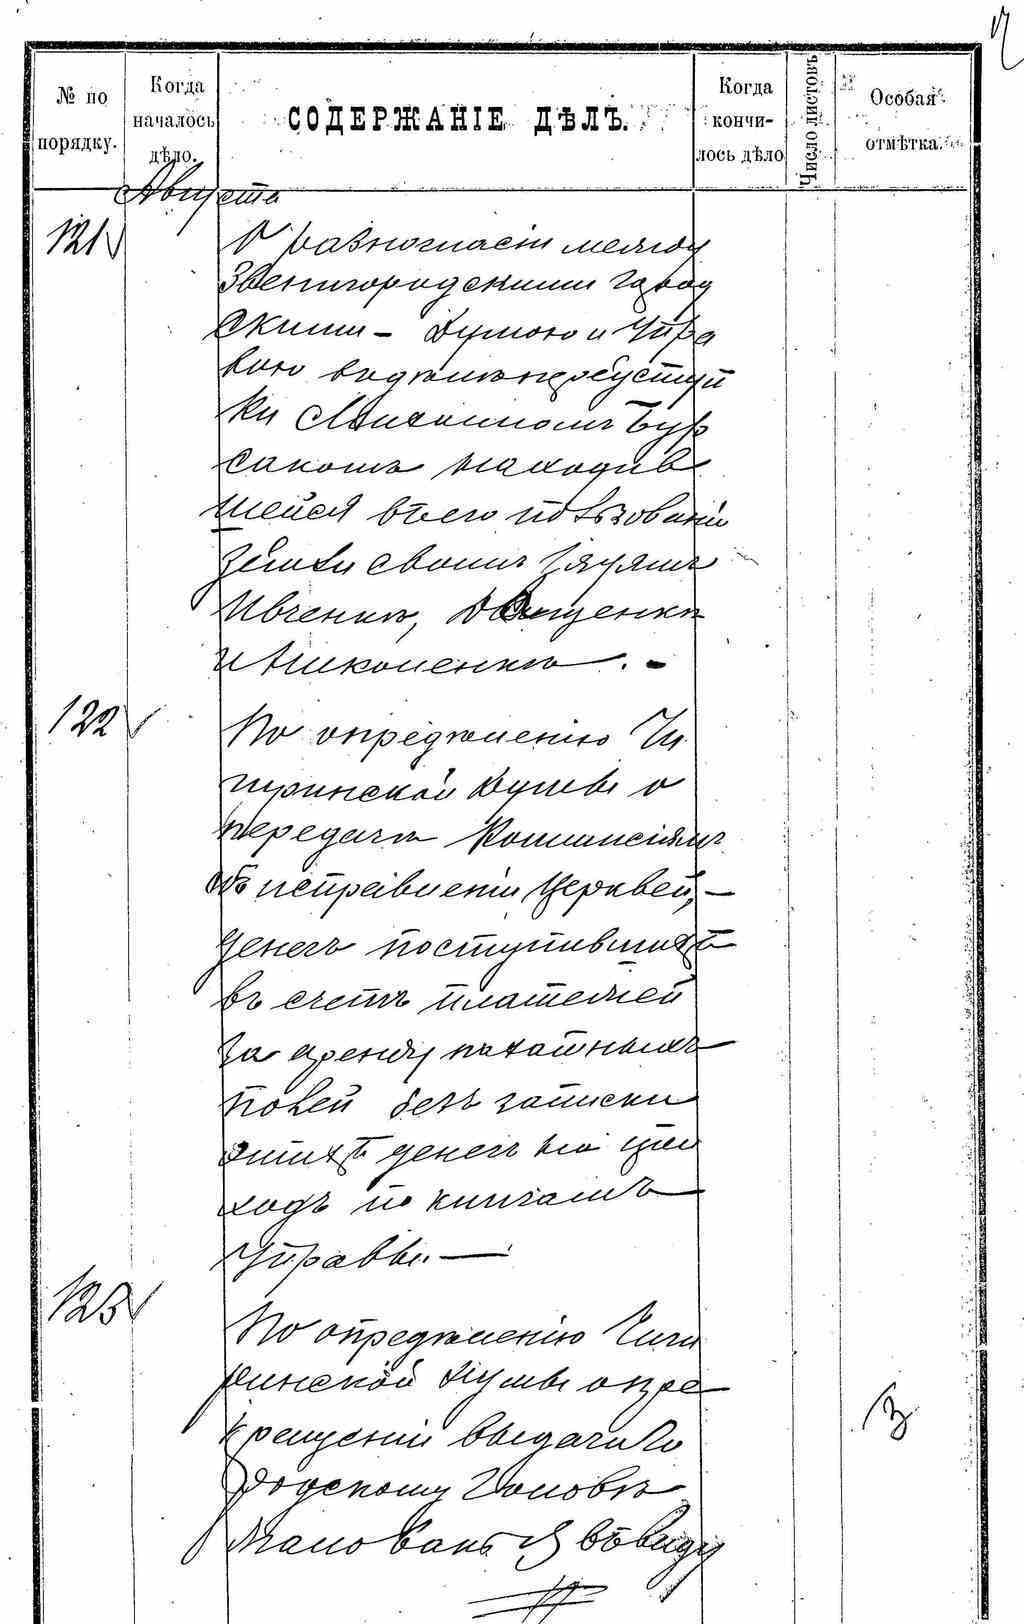 № по порядку.
Когда началось дѣло.
СОДЕРЖАНІЕ ДѢЛЪ.
Когда кончилось дѣло
Число листовъ
Особая отмѣтка.
Августа
121
О разногласіи между
Звенигородскими город
скими - Думою и Упра
вою относительно уступ
ки Бур
сакомъ находив
шейся въ его пользованіи
земли своимъ зятьямъ
Ивченкѣ,
и . -
122
По опредѣленію Чи
гиринской Думы о
передачѣ Коммисіямъ
по исправленіи Церквей, -
денегъ поступившихъ
въ счетъ платежей
за аренду пахатныхъ
полей безъ записки
этихъ денегъ на при
ходъ по книгамъ
Управы. —
123
По опредѣленію Чиги
ринской Думы о пре
кращеніи выдачи Го
родскому Головѣ
жалованья въ виду
З